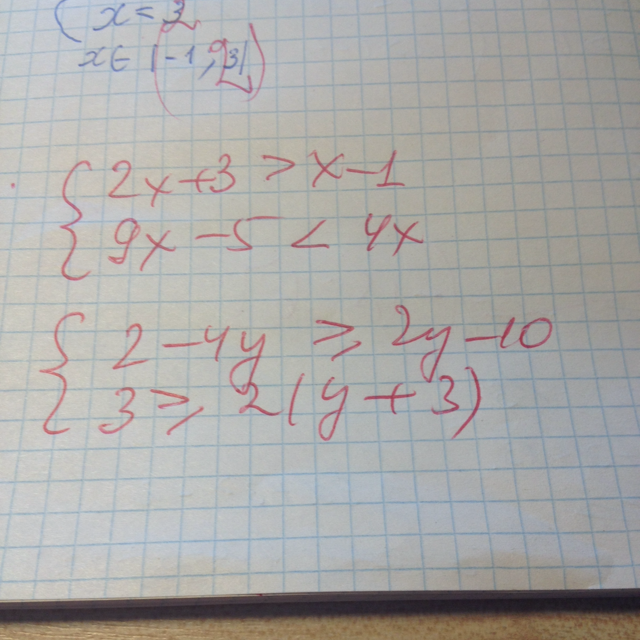 { x = 2
x ∈ (-1; 2)
{ 2x+3 > x-1
9x-5 < 4x
{ 2-4y ≥ 2y-10
3 ≥ 2(y+3)